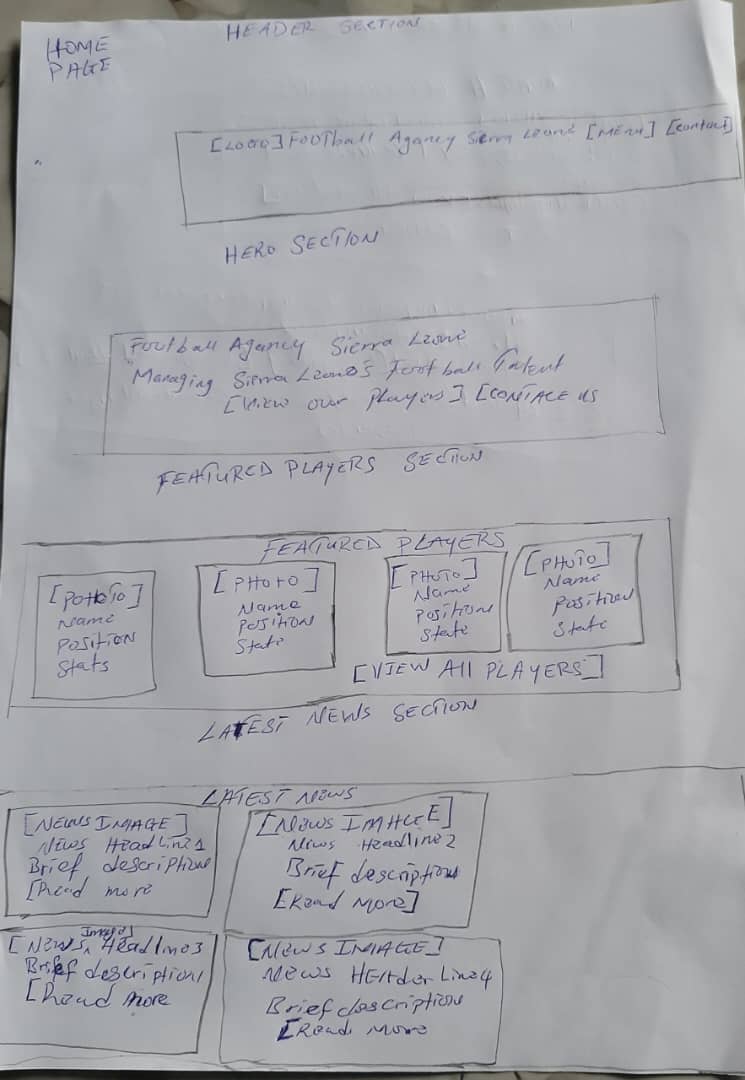 HEADER SECTION
HOME
PAGE
[LOGO] Football Agancy Sierra Leone [MENU] [Contact]
HERO SECTION
Football Agancy Sierra Leone
Managing Sierra Leone's Football Talent
[View our Players] [CONTACE US
FEATURED PLAYERS SECTION
FEATURED PLAYERS
[POHOTO]
Name
POSITION
Stats
[PHOTO]
Name
POSITION
State
[PHOTO]
Name
POSITION
State
[PHOTO]
Name
POSITION
State
[VIEW All PLAYERS]
LATEST NEWS SECTION
LATEST NEWS
[NEWS IMAGE]
News HeadLine 1
Brief description
[Read more
[News IMAGE]
News Headline 2
Brief description
[Read More]
[News Image] Headline 3
Brief description
[Read More
[NEWS IMAGE]
News Header Line 4
Brief description
[Read More